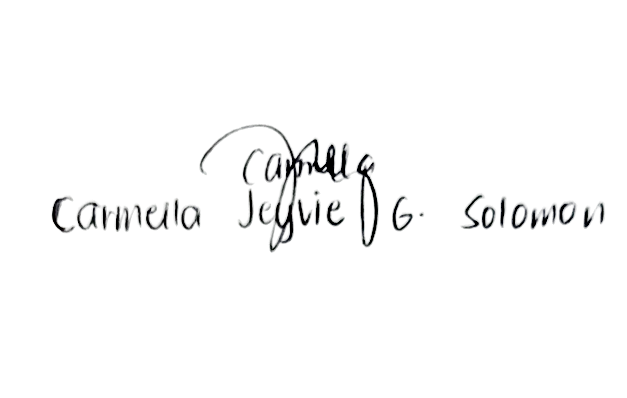 Carmella
Carmella Jeyvie G. Solomon